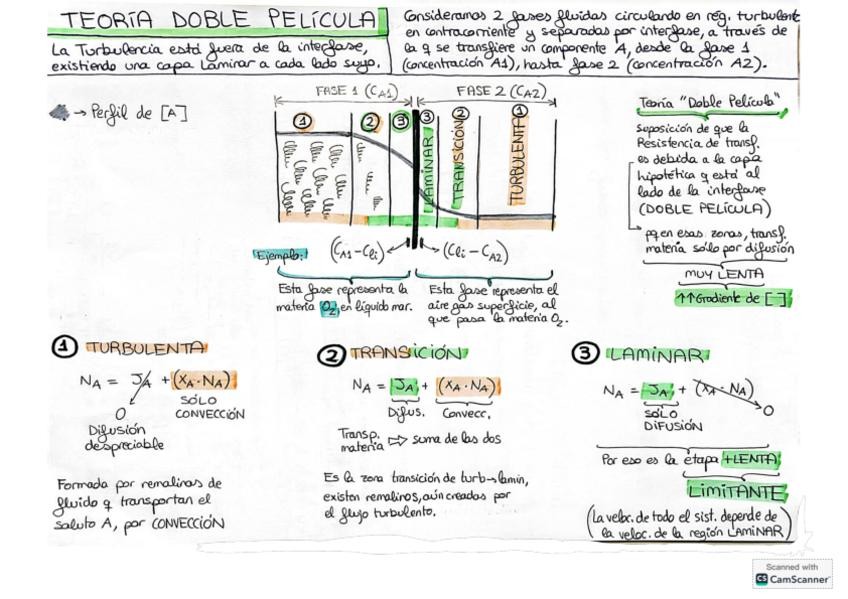 TEORÍA DOBLE PELÍCULA
La Turbulencia está fuera de la interfase,
existiendo una capa Laminar a cada lado suyo.
Consideramos 2 fases fluidas circulando en rég. turbulento
en contracorriente y separadas por interfase, a través de
la q se transfiere un componente A, desde la fase 1
(concentración A1), hasta fase 2 (concentración A2).
→ Perfil de [A]
FASE 1 (CA1)
FASE 2 (CA2)
① ② ③ ③ ② ①
LAMINAR
TRANSICIÓN
TURBULENTA
Ejemplo:
(CA1-Cli)
(Cli - CA2)
Esta fase representa la
materia O2, en líquido mar.
Esta fase representa el
aire gas superficie, al
que pasa la materia O2.
Teoría "Doble Película"
suposición de que la
Resistencia de transf.
es debida a la capa
hipotética q está al
lado de la interfase
(DOBLE PELÍCULA)
pq en esas zonas, transf.
materia sólo por difusión
MUY LENTA
↑↑Gradiente de [-]
① TURBULENTA
NA = JA + (XA·NA)
0
SÓLO
CONVECCIÓN
Difusión
despreciable
Formada por remolinos de
fluido q transportan el
soluto A, por CONVECCIÓN
② TRANSICIÓN
NA = JA + (XA·NA)
Difus. Convecc.
Transp.
materia ⇨ suma de las dos
Es la zona transición de turb→lamin,
existen remolinos, aún creados por
el flujo turbulento.
③ LAMINAR
NA = JA + (XA·NA)
0
SÓLO
DIFUSIÓN
Por eso es la etapa +LENTA
LIMITANTE
(La veloc. de todo el sist. depende de
la veloc. de la región LAMINAR)
Scanned with
CS CamScanner